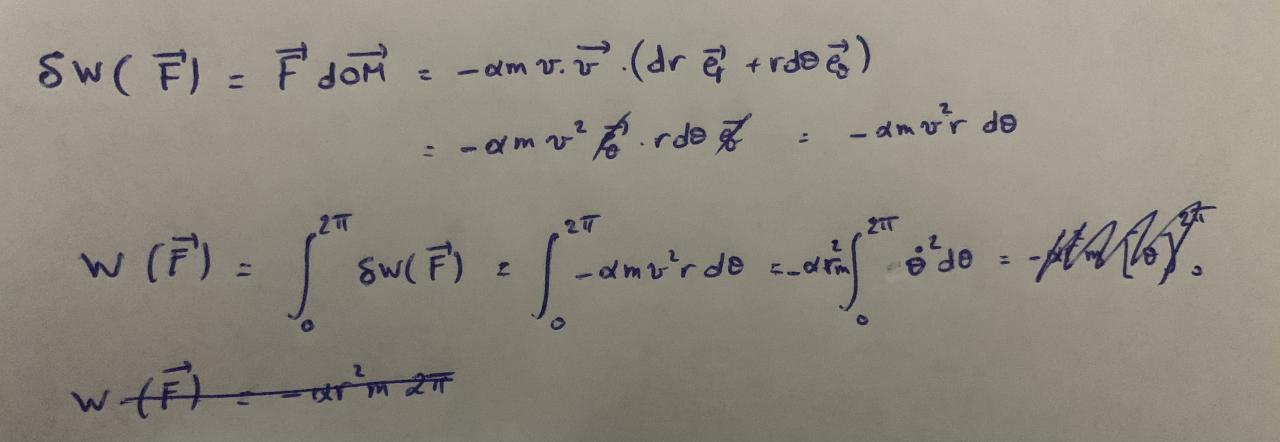 δW(F⃗) = F⃗ dOM⃗ = -αm v.v⃗.(dr e⃗r + rdθ e⃗θ)
= -αm v² e⃗θ . rdθ e⃗θ = -αmv²r dθ
W(F⃗) = ∫₀^2π δW(F⃗) = ∫₀^2π -αmv²r dθ = -αr²m ∫₀^2π θ̇² dθ = -
W (F⃗) = -αr²m 2π